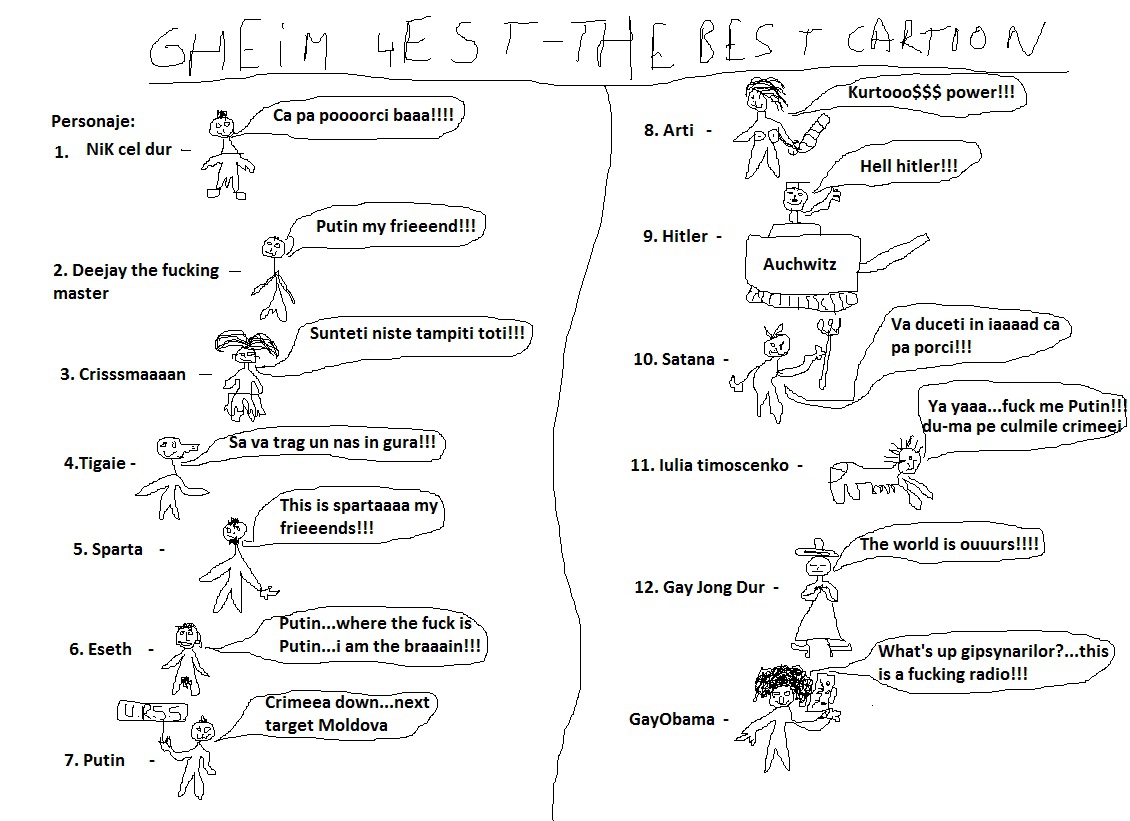 GHEIM 4EST-THE BEST CARTION
Personaje:
1. NiK cel dur –
Ca pa poooorci baaa!!!!
2. Deejay the fucking
master
–
Putin my frieeend!!!
3. Crisssmaaaan –
Sunteti niste tampiti toti!!!
4.Tigaie -
Sa va trag un nas in gura!!!
5. Sparta -
This is spartaaaa my
frieeends!!!
6. Eseth -
Putin...where the fuck is
Putin...i am the braaain!!!
7. Putin -
U.R.S.S
Crimeea down...next
target Moldova
8. Arti -
Kurtooo$$$ power!!!
9. Hitler -
Hell hitler!!!
Auchwitz
10. Satana -
Va duceti in iaaaad ca
pa porci!!!
11. Iulia timoscenko -
Ya yaaa...fuck me Putin!!!
du-ma pe culmile crimeei
12. Gay Jong Dur -
The world is ouuurs!!!!
GayObama -
What's up gipsynarilor?...this
is a fucking radio!!!